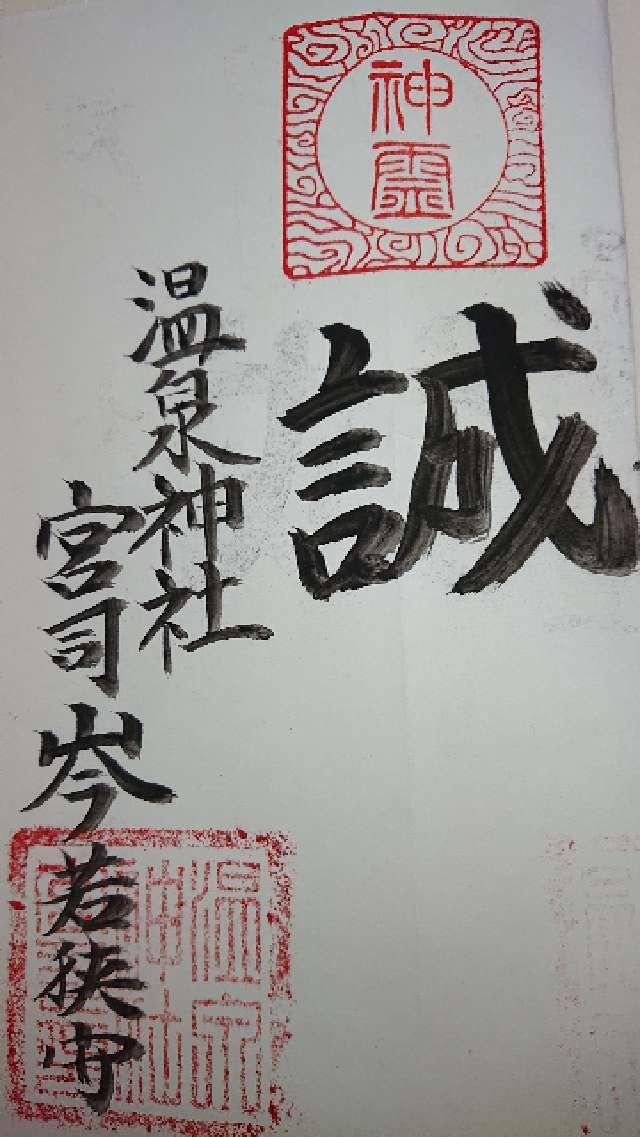 神霊
誠
温泉神社
宮司 岑若狭守
温泉
神社